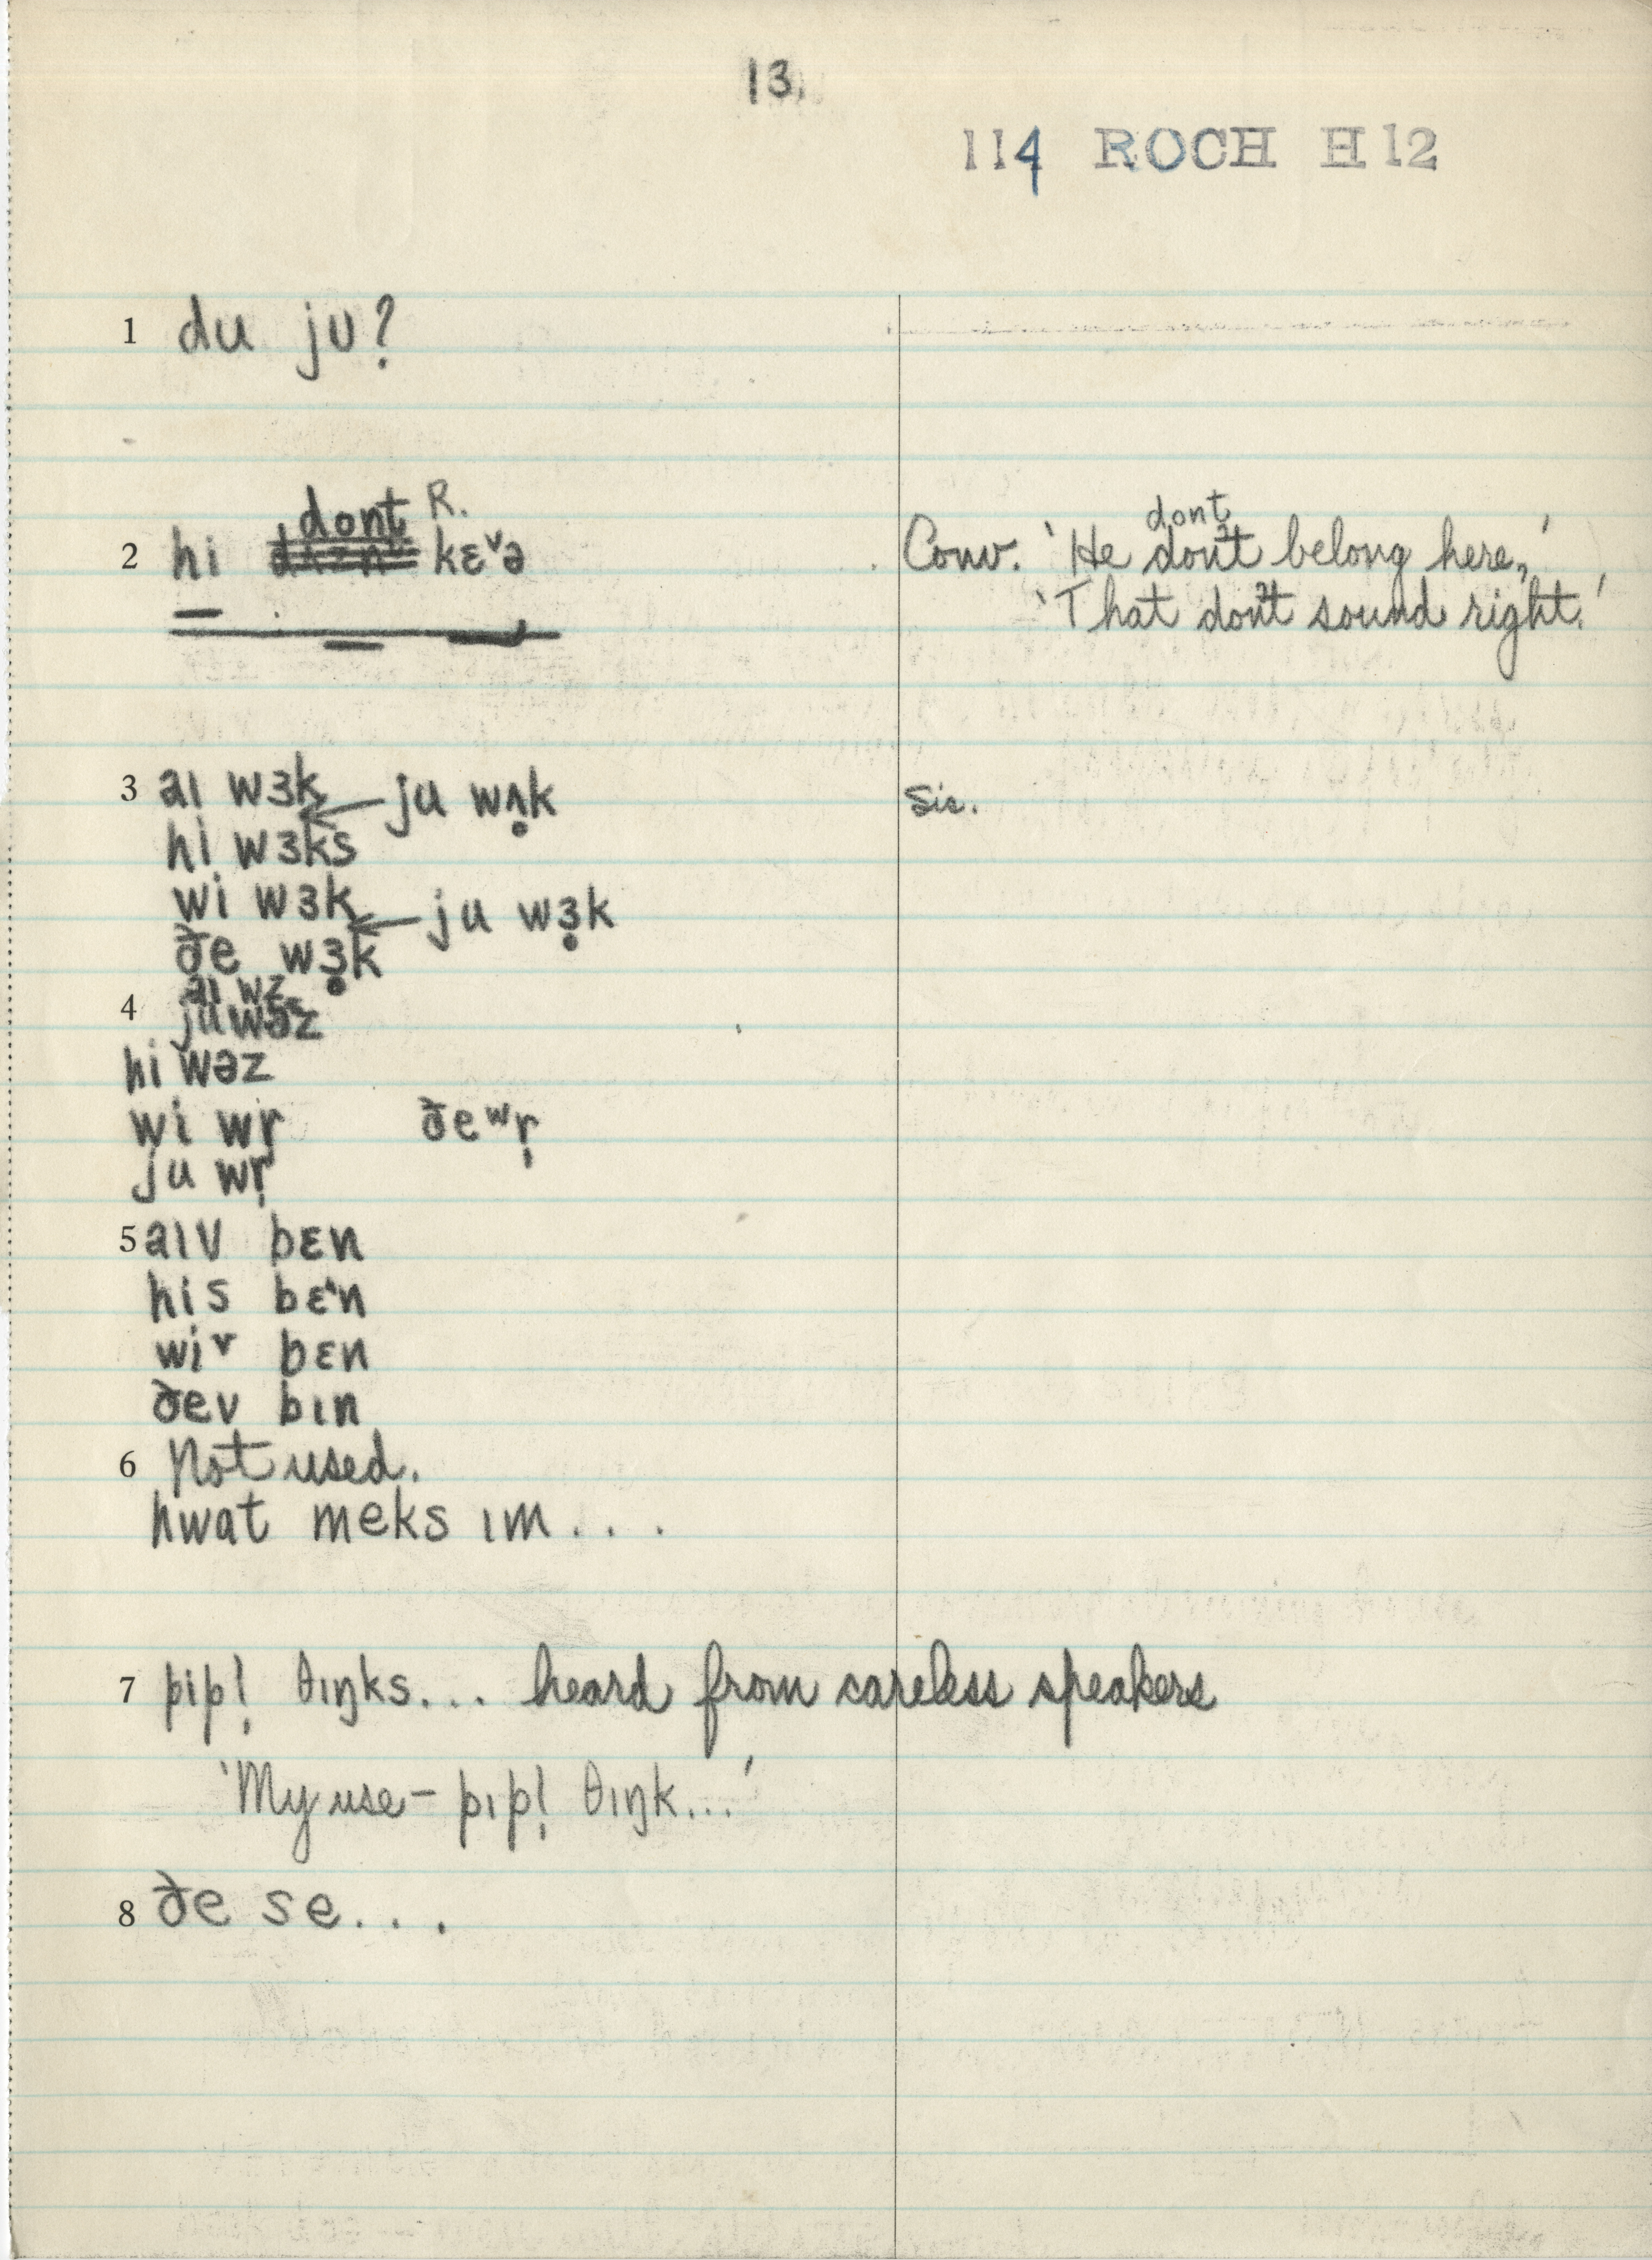 13.
114 ROCH H12
1 du ju?
dont R.
2 hi kɛ˅ə
dont
Conv. 'He don't belong here,'
'That don't sound right.'
3 aɪ wɜk ← ju wʌ̣k
Sic.
hi wɜks
wi wɜk ← ju wɜ̣k
ðe wɜ̣k
aɪ wz
4 ju wəz
hi wəz
wi wr̩ ðe wr̩
ju wr̩
5 aɪv bɛn
his bɛ˄n
wiv bɛn
ðev bɪn
6 Not used.
hwat meks ɪm . . .
7 pip! θɪŋks... heard from careless speakers
'My use – pɪpl̩ θɪŋk...'
8 ðe se...